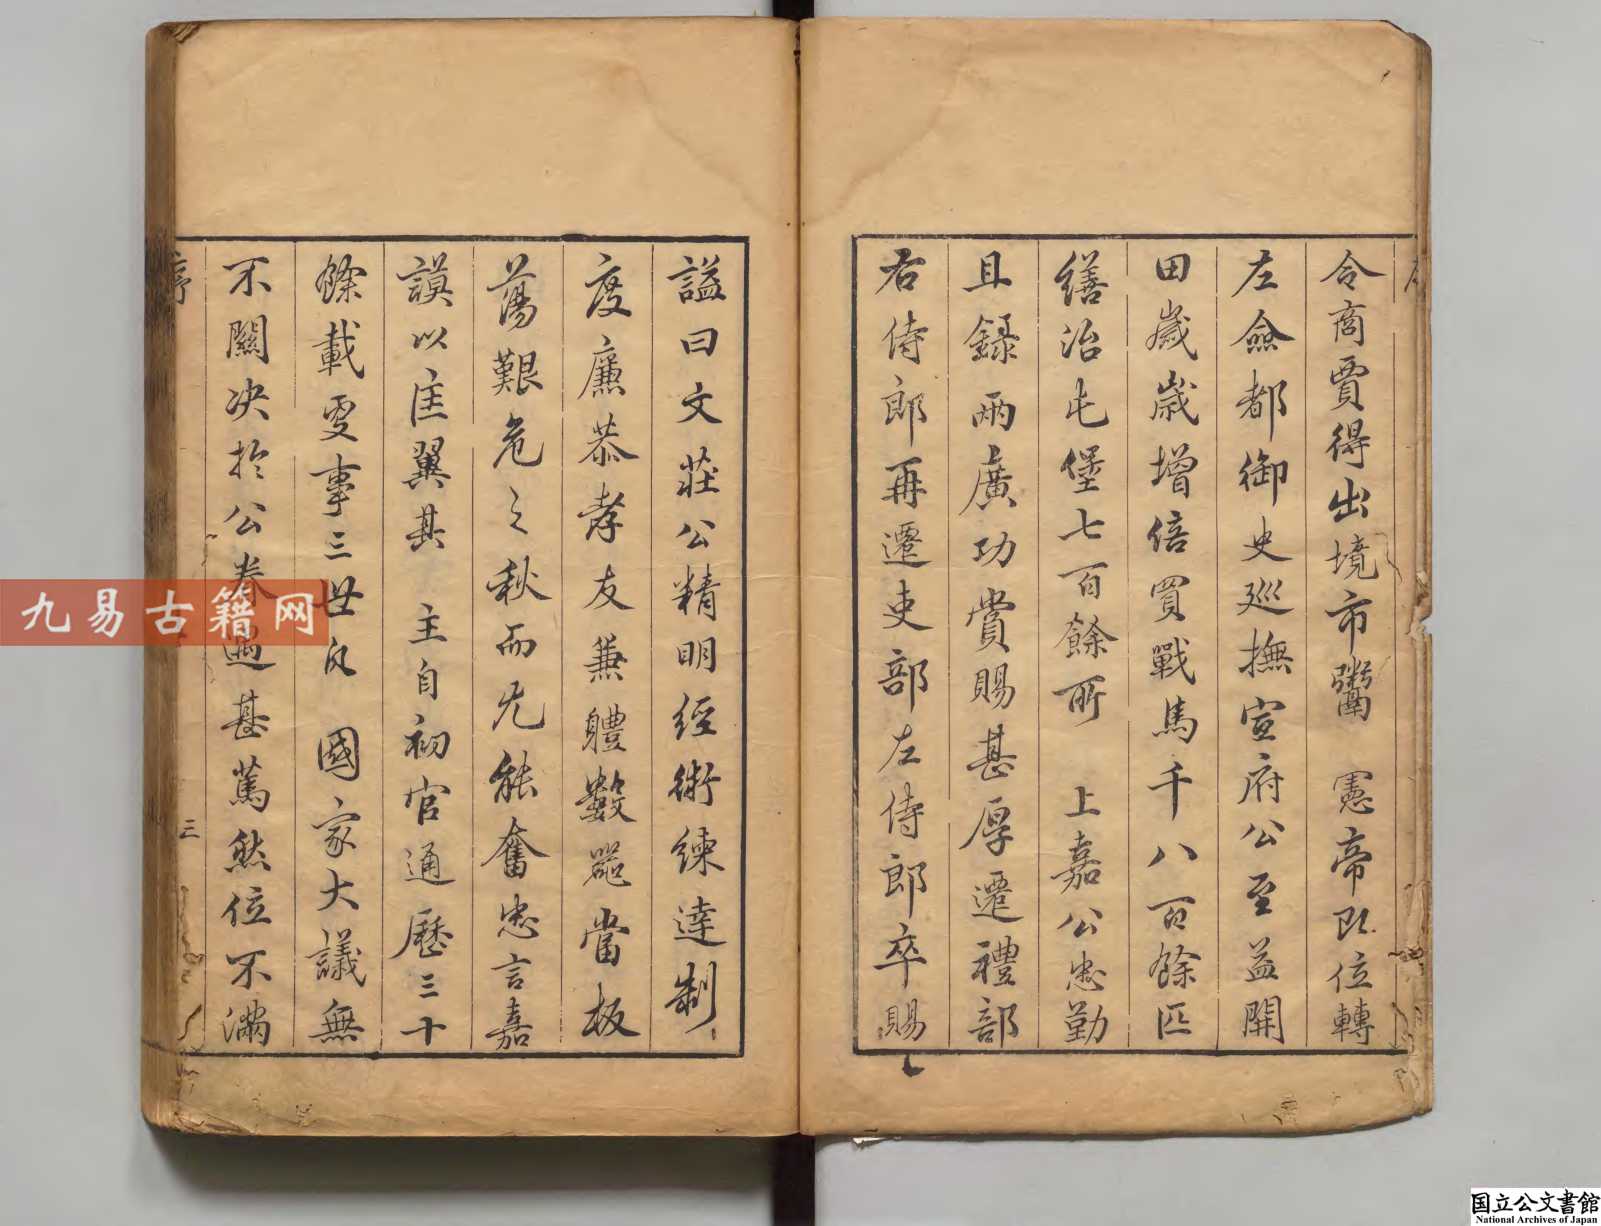 令商賈得出境市鬻　憲帝即位轉
左僉都御史巡撫宣府公至益開
田歲歲增倍買戰馬千八百餘匹
繕治屯堡七百餘所　上嘉公忠勤
且録兩廣功賞賜甚厚遷禮部
右侍郎再遷吏部左侍郎卒賜
謚曰文莊公精明經術練達制
度廉恭孝友兼體數器當板
蕩艱危之秋而尤能奮忠言嘉
謨以匡翼其　主自初官通歷三十
餘載更事三世凡　國家大議無
不關決於公眷遇甚篤然位不滿
序
三
九易古籍网
国立公文書館
National Archives of Japan